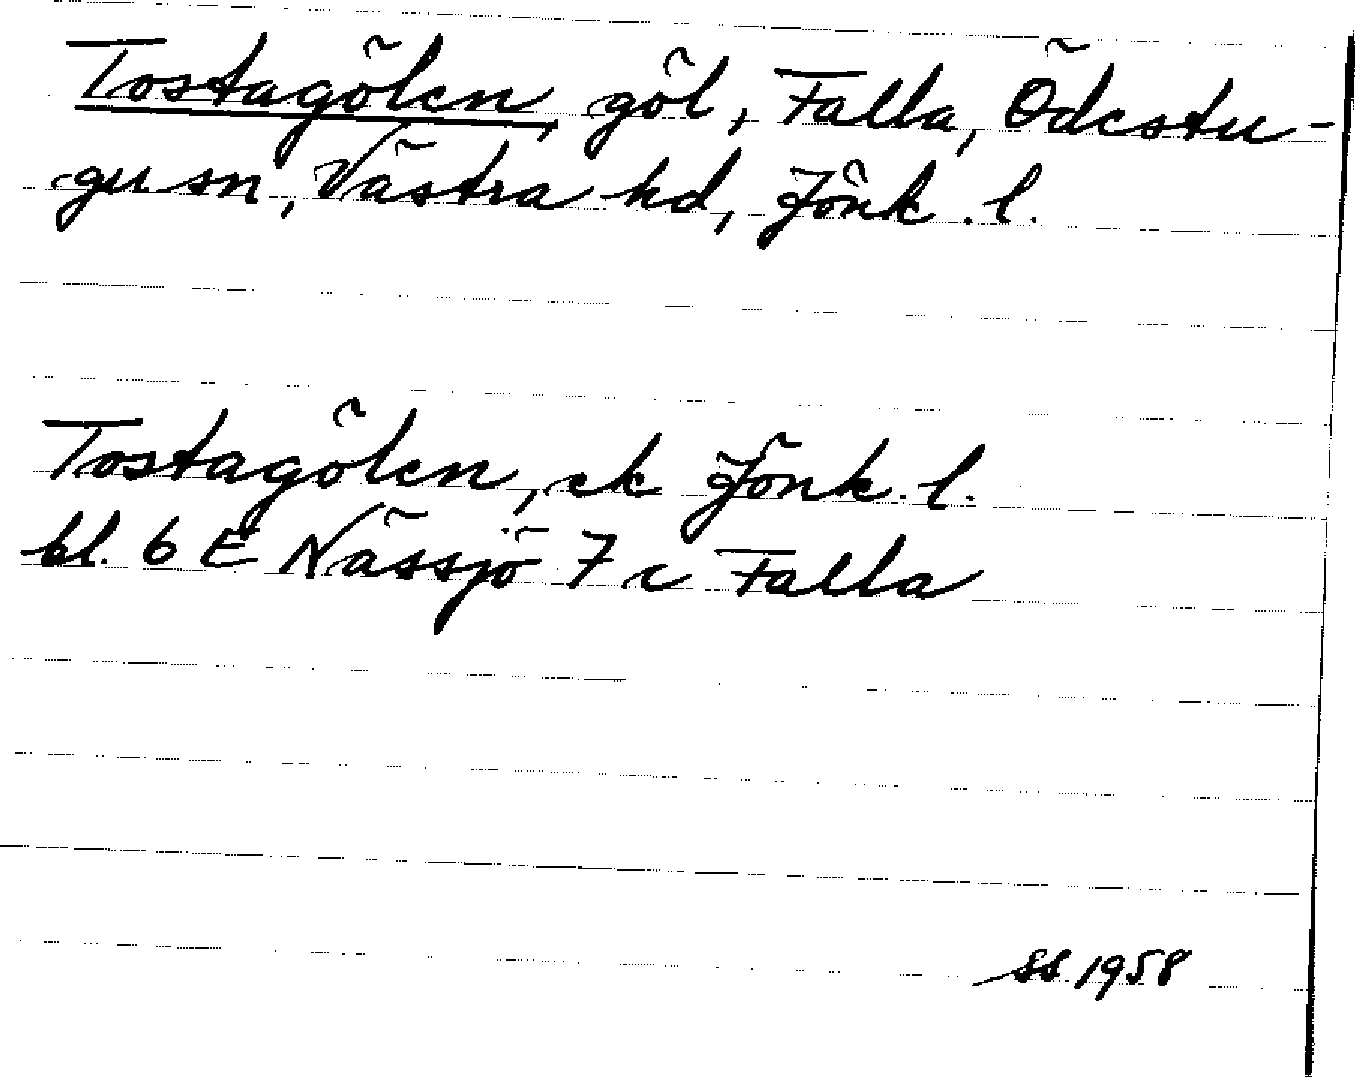 Tostagölen, göl, Falla, Ödestu-
gu sn, Västra hd, Jönk. l.
Tostagölen, ek Jönk. l.
bl. 6 E Nässjö 7 c Falla
SS 1958